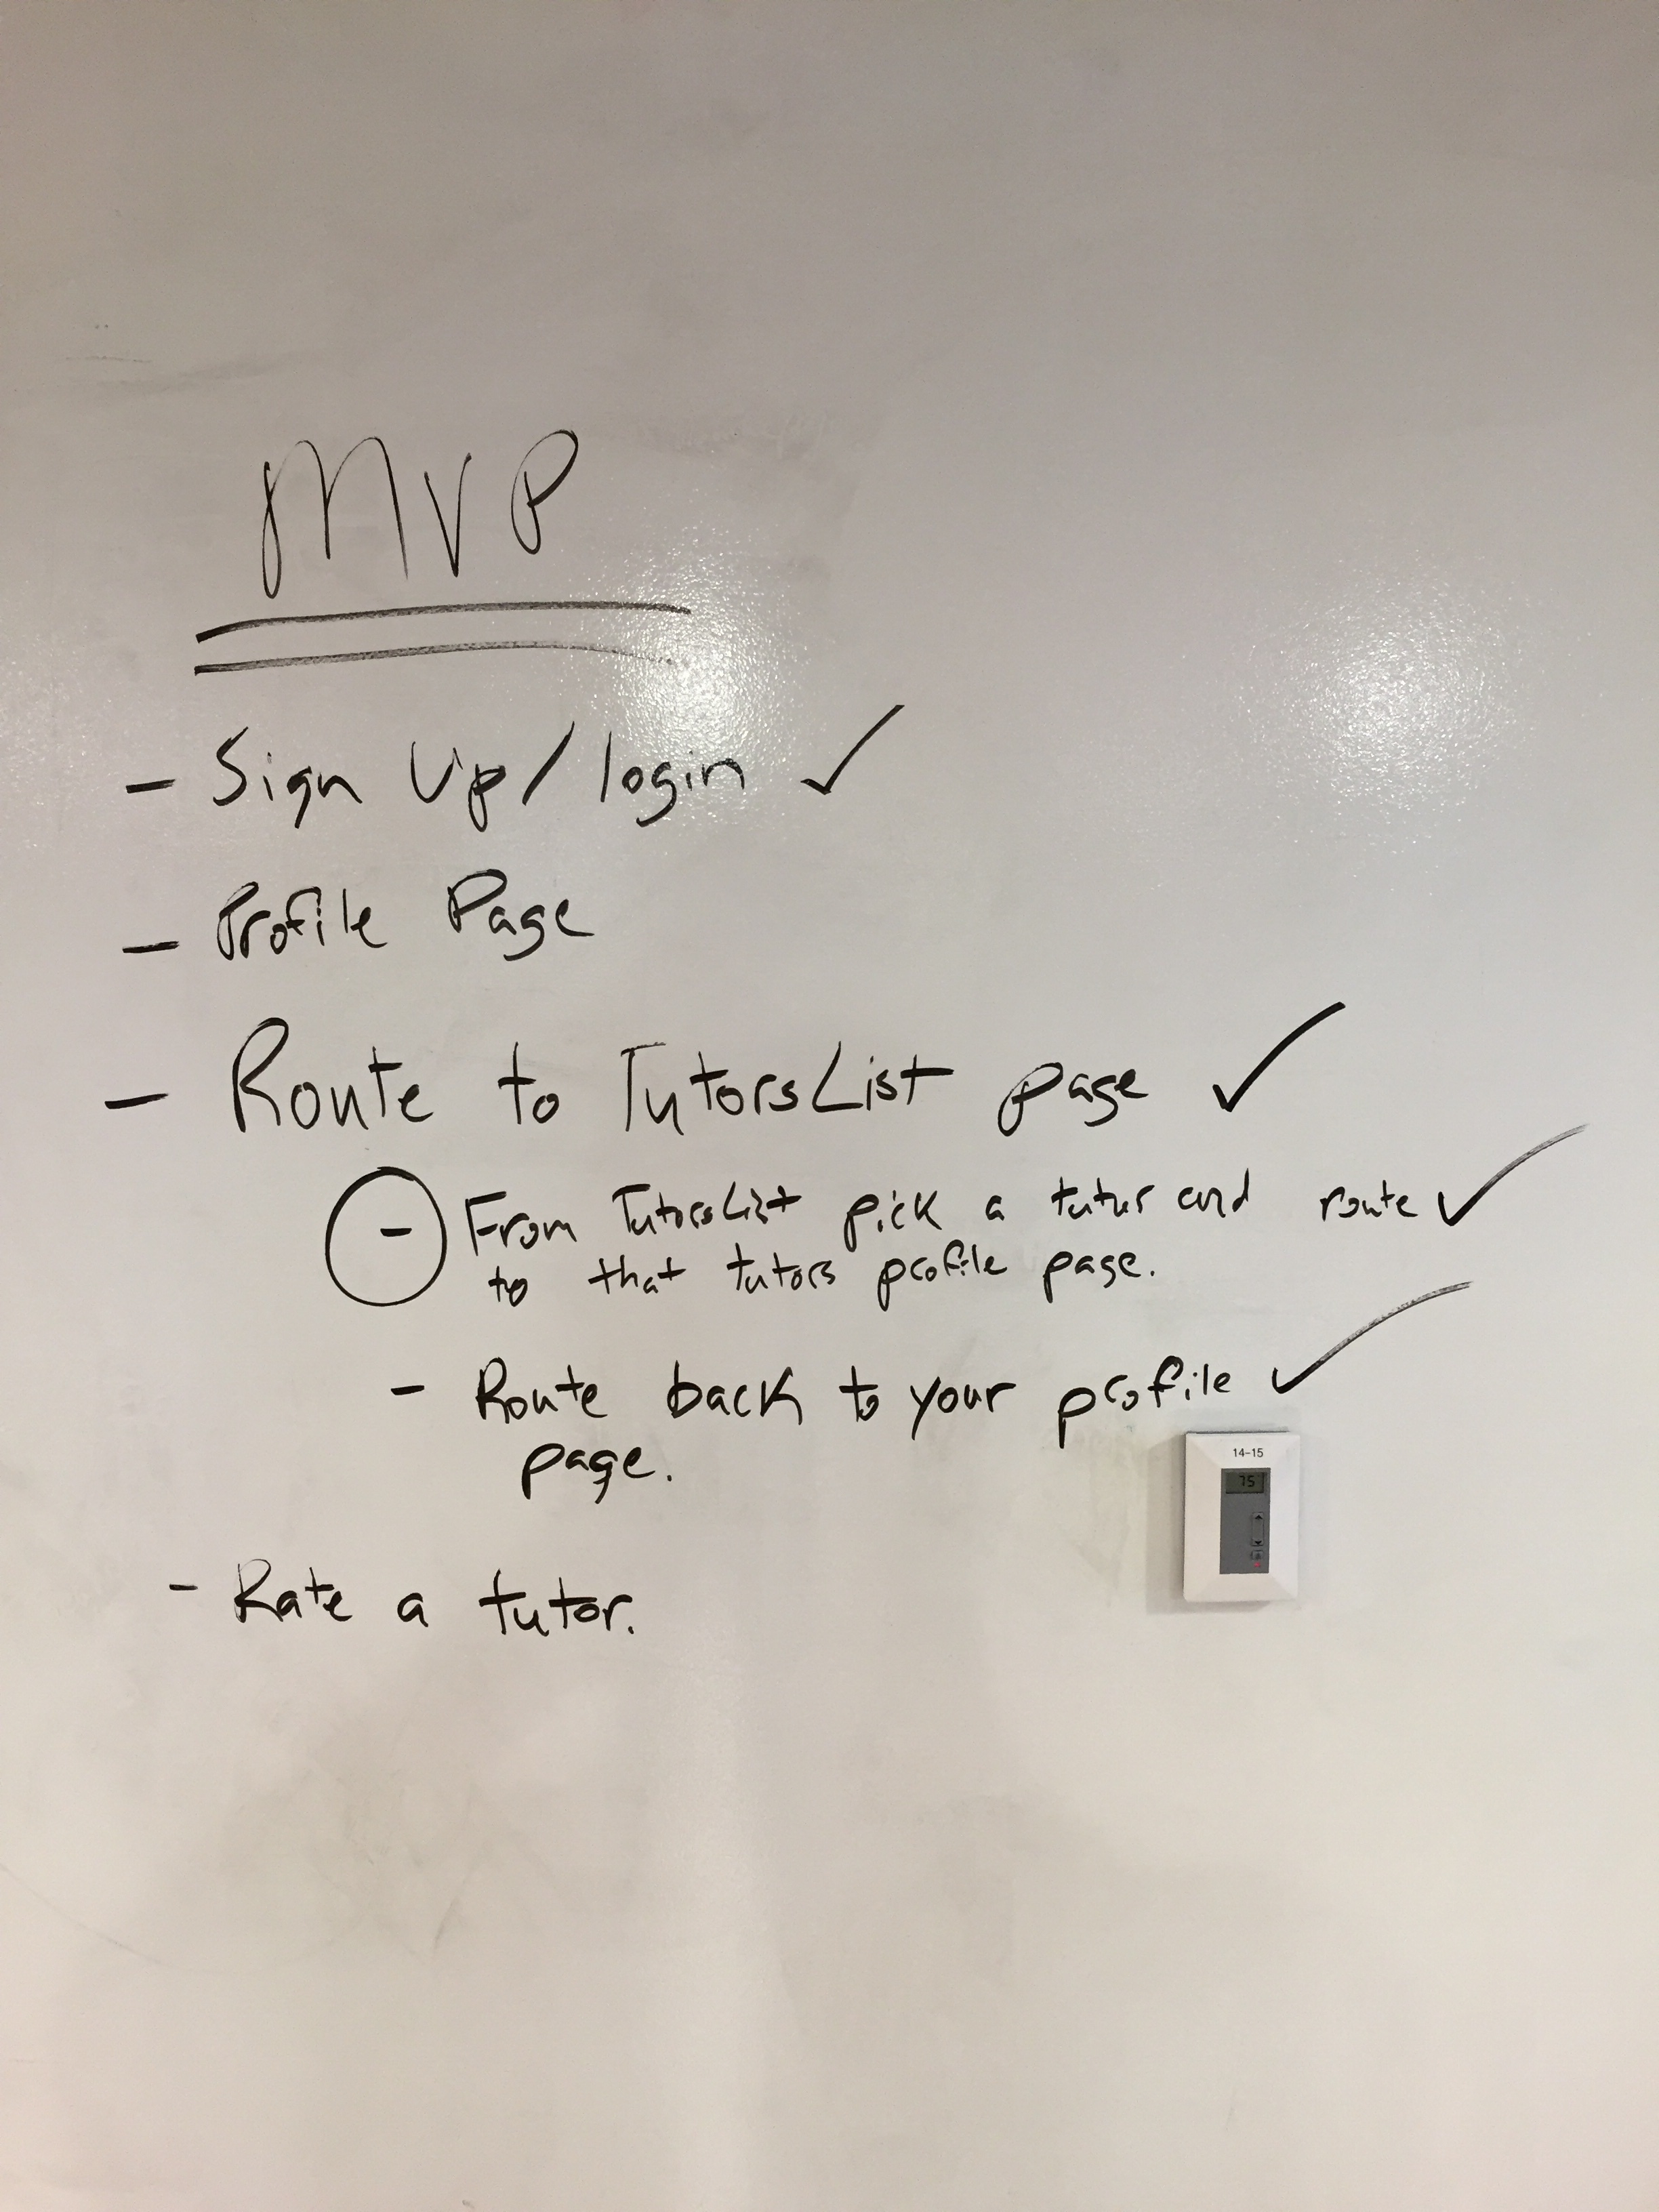 MVP
- Sign Up/login ✓
- Profile Page
- Route to TutorsList page ✓
- From TutorsList pick a tutor and route ✓
to that tutors profile page.
- Route back to your profile ✓
page.
14-15
75
- Rate a tutor.